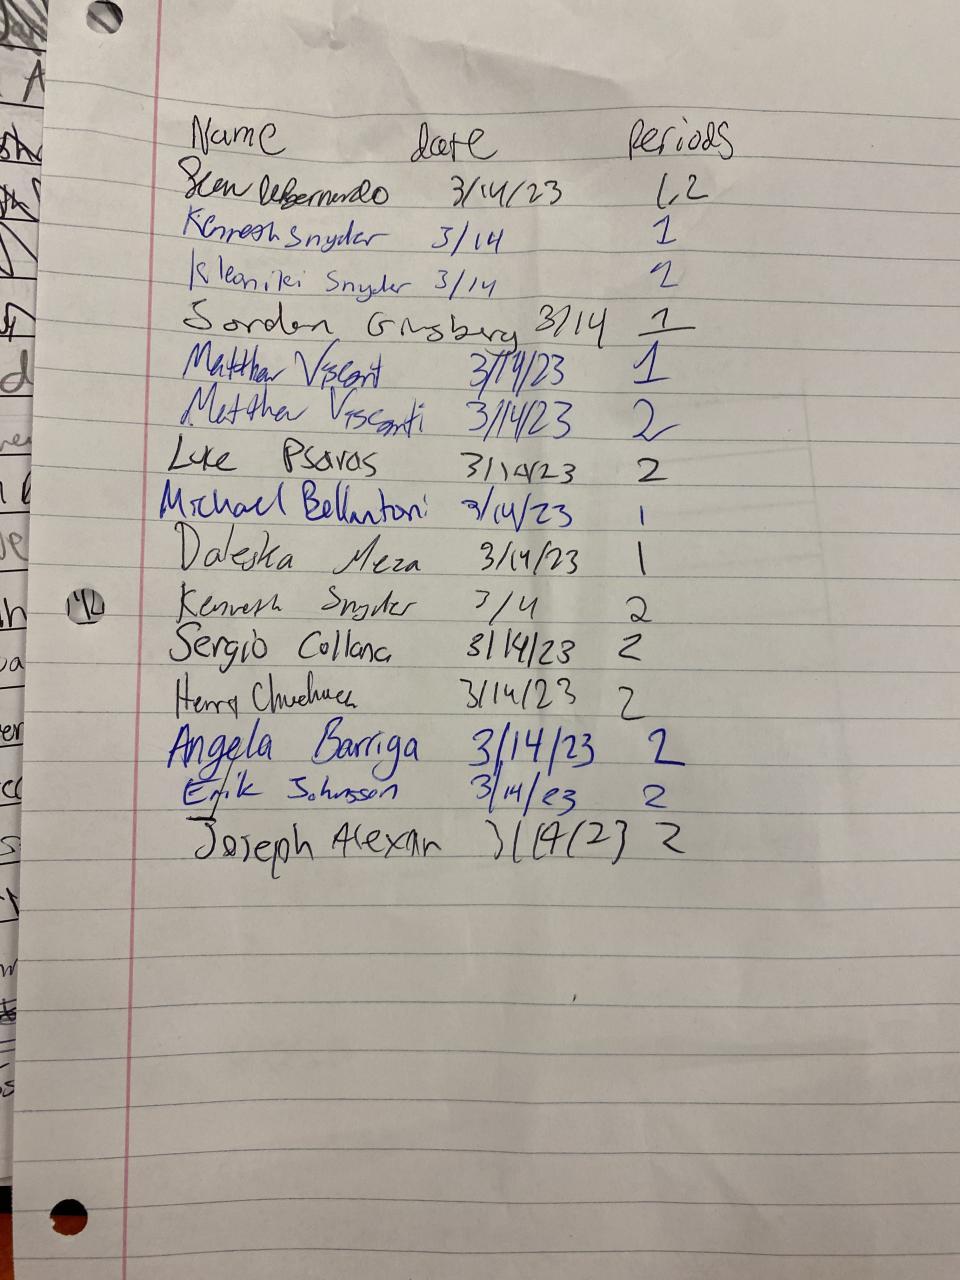 Name date Periods
Sean DeBernardo 3/14/23 1,2
Kenresh Snyder 3/14 1
Kleoniki Snyder 3/14 2
Jordan Ginsberg 3/14 1
Matthew Viscont 3/14/23 1
Matthew Visconti 3/14/23 2
Luke Psaras 3/14/23 2
Michael Bellantoni 3/14/23 1
Daleska Meza 3/14/23 1
Kenresh Snyder 3/4 2
Sergio Collana 3/14/23 2
Henry 3/14/23 2
Angela Barriga 3/14/23 2
Erik Johnsson 3/14/23 2
Joseph Alexan 3/14/23 2